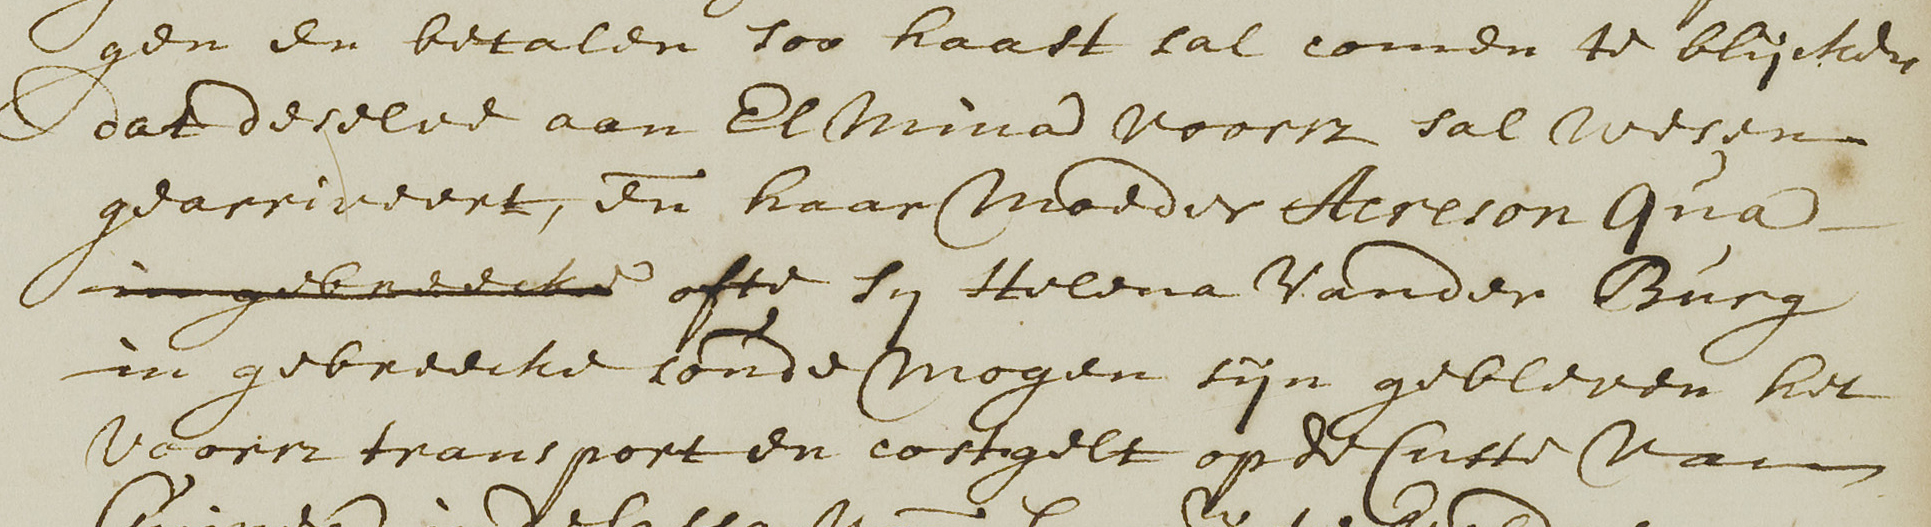 gen en betalen soo haast sal comen te blijcken
dat deselve aan El Mina voorsz sal wesen
gearriveert, en haar Moeder Acreson Qua
in gebreecke ofte sy Helena Vander Burg
in gebreecke sonde Mogen sijn gebleven het
voorsz transport en costgelt op de Custe Van